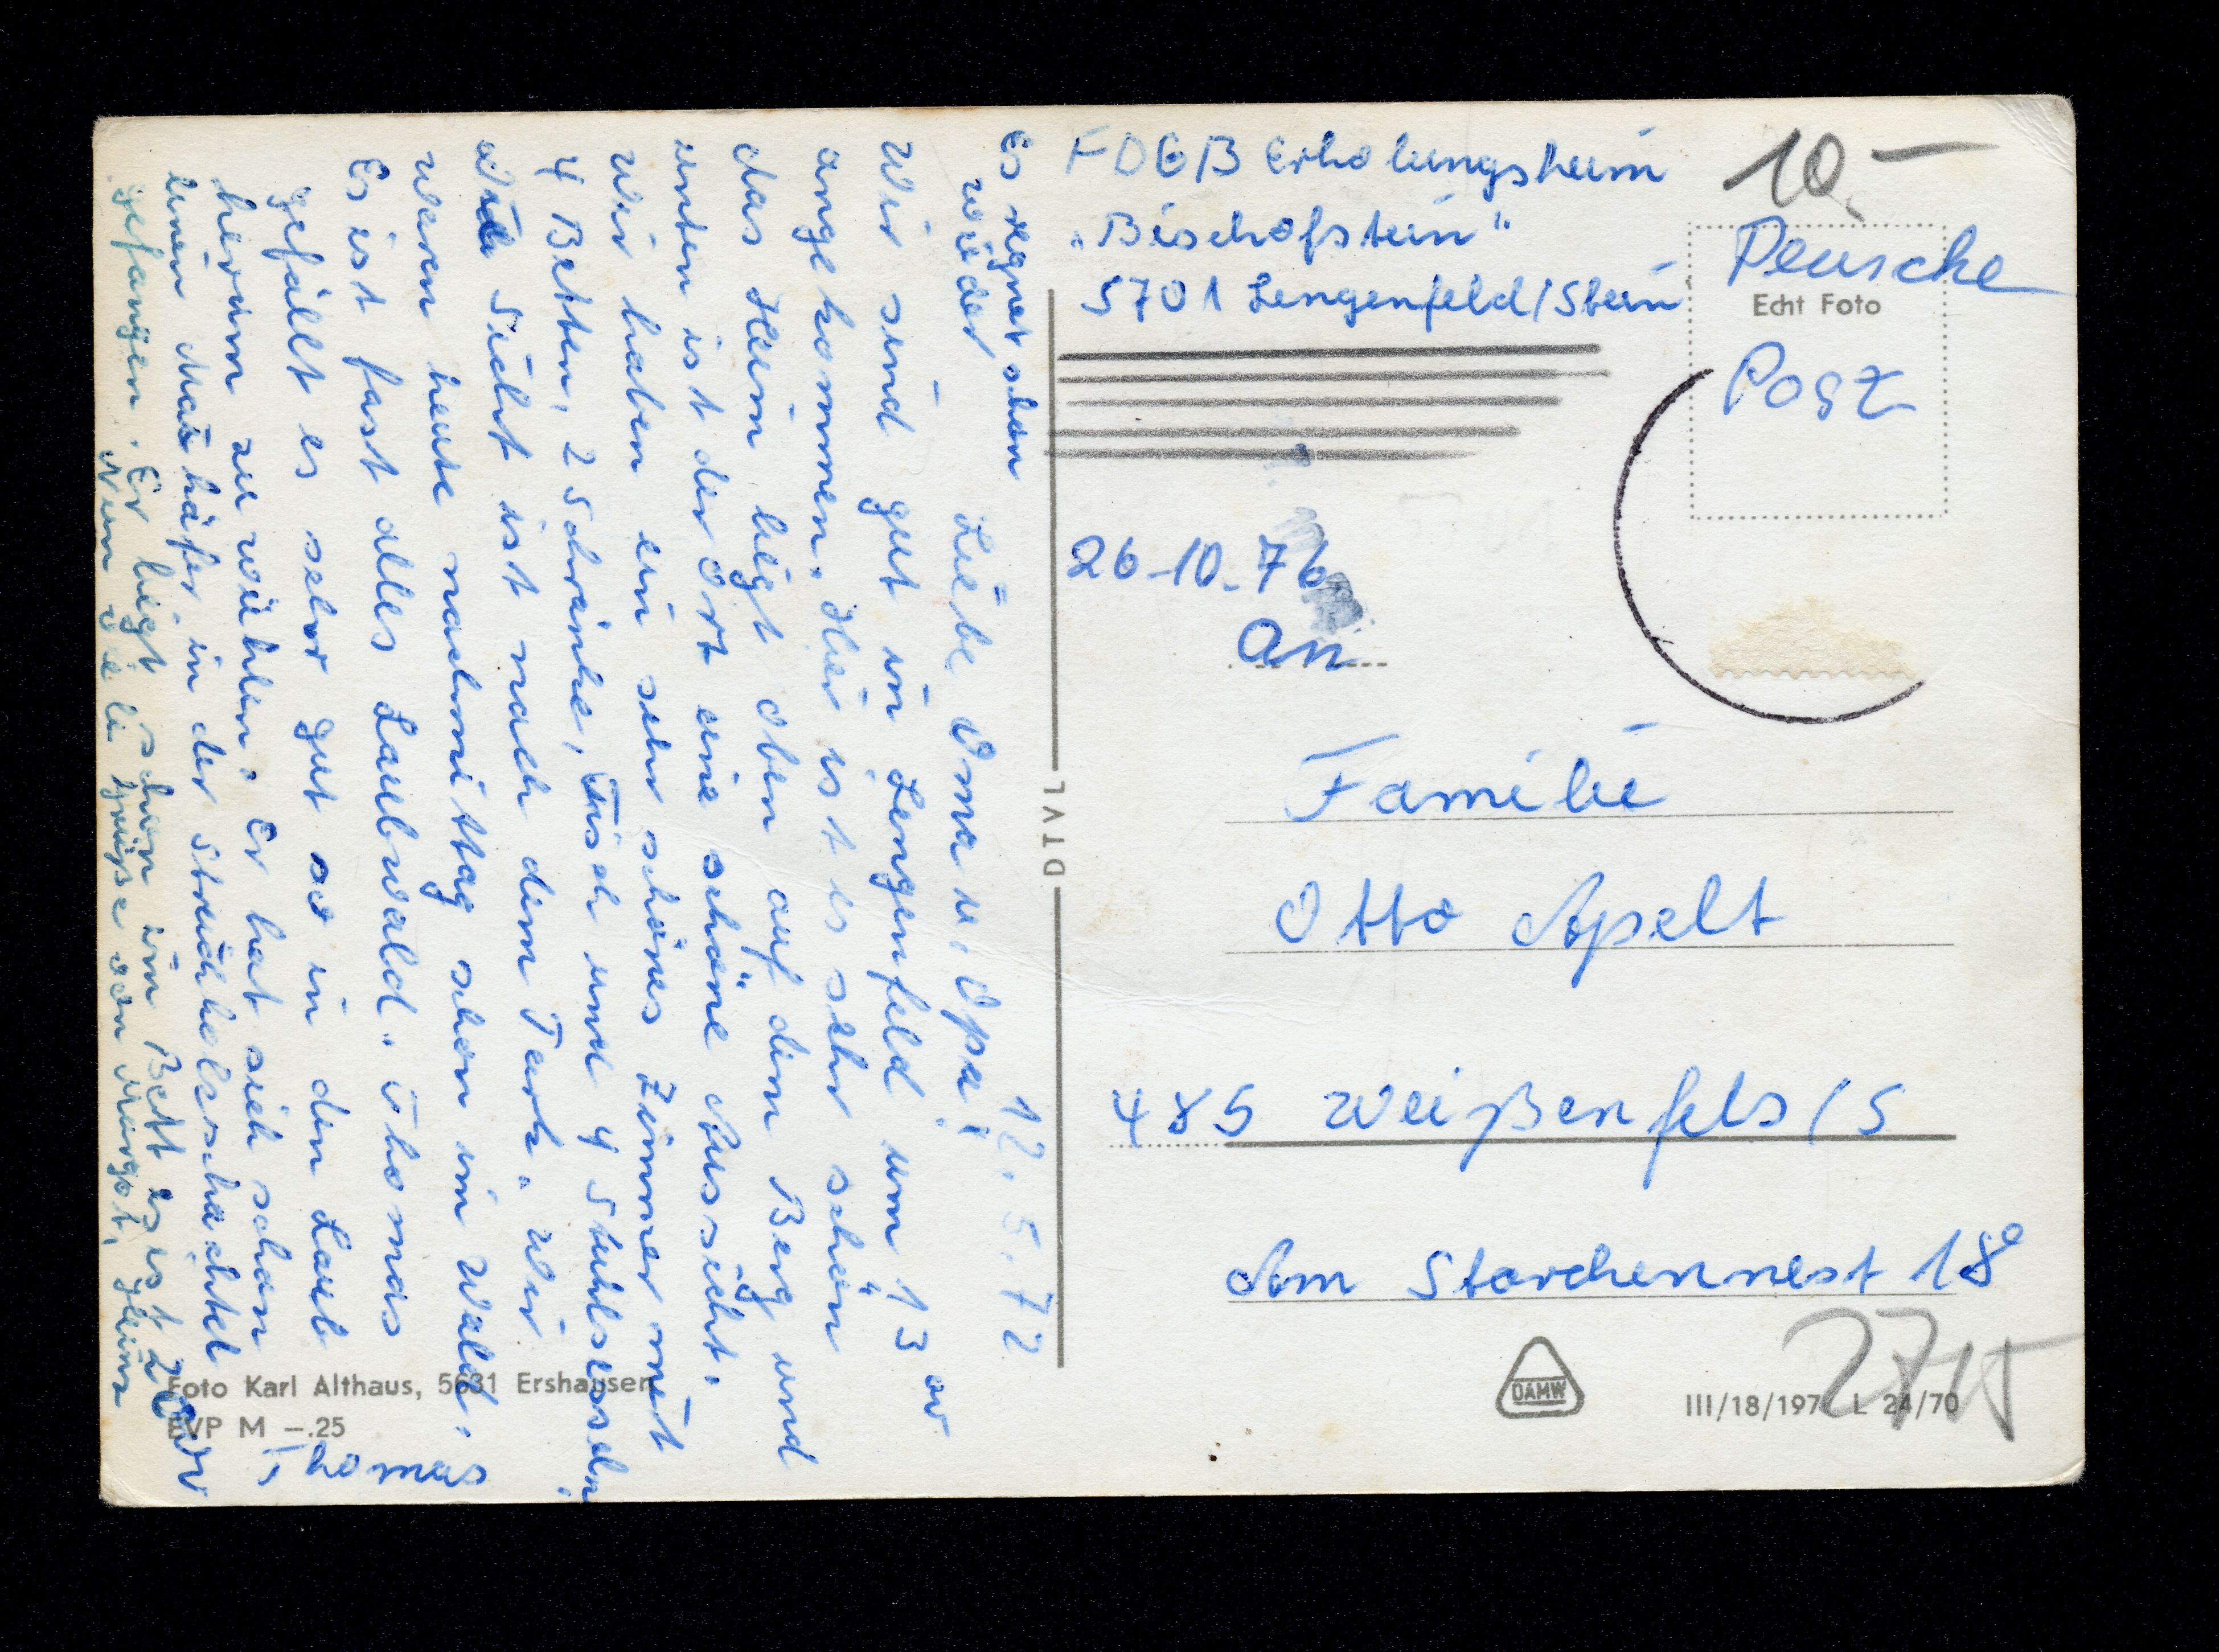 12.5.72
Es regnet schon
wieder
Liebe Oma u. Opa!
Wir sind gut in Lengenfeld um 13
angekommen. Hier ist es sehr schön
das Heim liegt oben auf dem Berg und
unten ist der Ort eine schöne Aussicht.
Wir haben ein sehr schönes Zimmer mit
4 Betten, 2 Schränke, Tisch und 4 Stuhlsesseln,
die Sicht ist nach dem Park. Wir
waren heute nachmittag schon im Wald.
Es ist fast alles Laubwald. Thomas
gefällt es sehr gut so in den Laub
herum zu wühlen. Er hat sich schon
einen Maikäfer in der Streichholsschachtel
gefangen. Er liegt schon im Bett es ist 20 Uhr
Nun viele Grüße von Margot,
Thomas
FDGB Erholungsheim
"Bischofstein"
5701 Lengenfeld/Stein
10,-
Deusche
Echt Foto
Post
26-10.76
An
Familie
Otto Apelt
485 Weißenfels/S
Am Storchennest 18
2715
DTVL
Foto Karl Althaus, 5631 Ershausen
EVP M -.25
DAMW
III/18/197 L 24/70